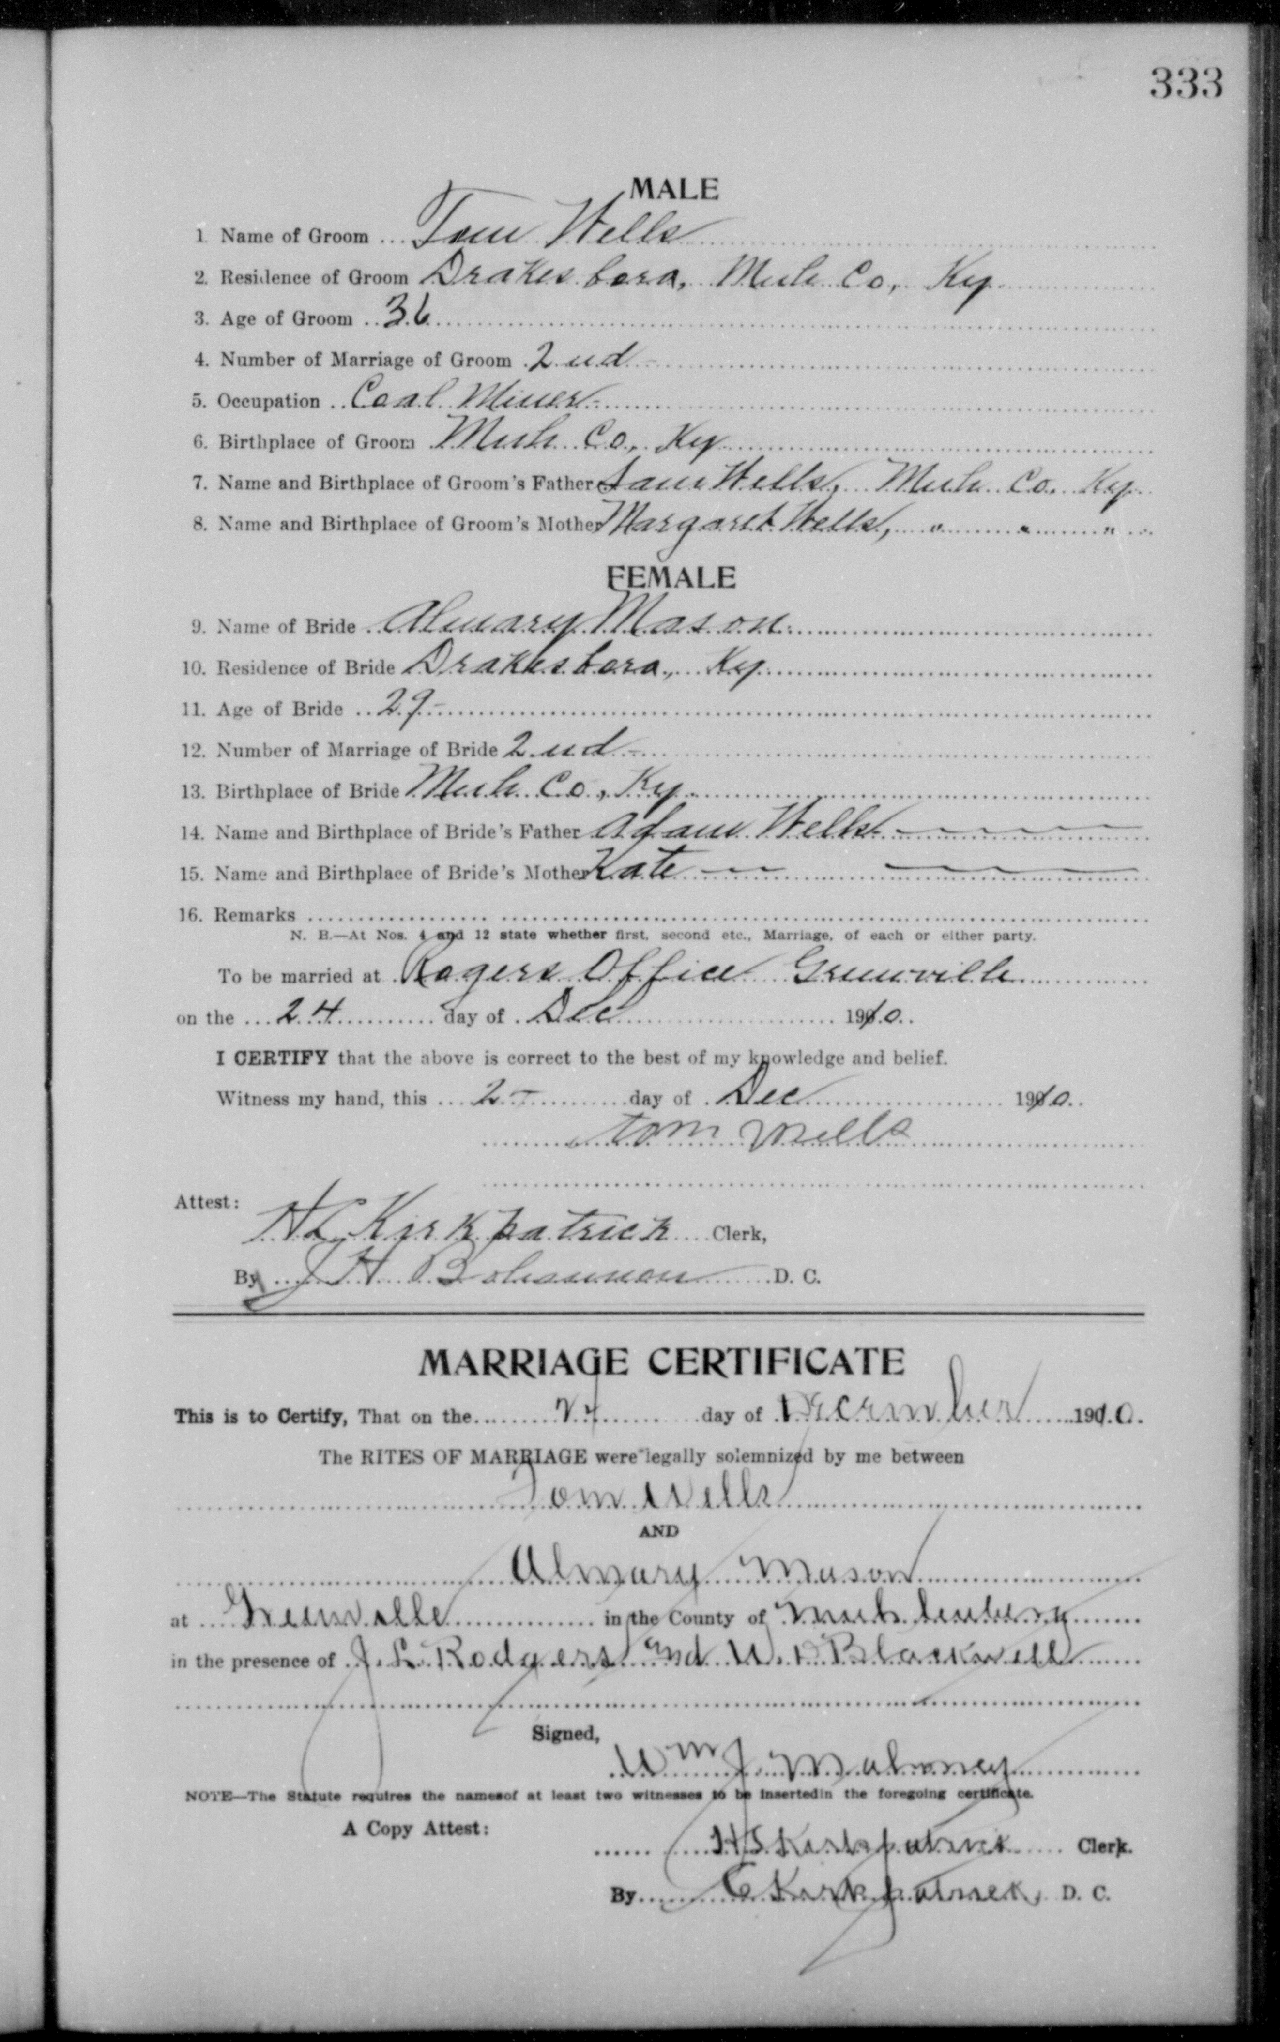 333
MALE
1. Name of Groom Tom Wells
2. Residence of Groom Drakesboro, Muh. Co, Ky
3. Age of Groom 36
4. Number of Marriage of Groom 2nd
5. Occupation Coal Miner
6. Birthplace of Groom Muh Co, Ky
7. Name and Birthplace of Groom's Father Sam Wells, Muh Co, Ky
8. Name and Birthplace of Groom's Mother Margaret Wells, " " "
FEMALE
9. Name of Bride Almary Mason
10. Residence of Bride Drakesboro, Ky
11. Age of Bride 29
12. Number of Marriage of Bride 2nd
13. Birthplace of Bride Muh Co, Ky
14. Name and Birthplace of Bride's Father Adam Wells
15. Name and Birthplace of Bride's Mother Kate
16. Remarks
N. B.—At Nos. 4 and 12 state whether first, second etc., Marriage, of each or either party.
To be married at Rogers Office Greenville
on the 24 day of Dec 1910.
I CERTIFY that the above is correct to the best of my knowledge and belief.
Witness my hand, this 2 day of Dec 1910.
tom Wells
Attest:
Kirkpatrick Clerk,
By J H Bohannon D. C.
MARRIAGE CERTIFICATE
This is to Certify, That on the 24 day of December 1910.
The RITES OF MARRIAGE were legally solemnized by me between
Tom Wells
AND
Almary Mason
at Greenville in the County of Muhlenberg
in the presence of J. L. Rodgers and W. D Blackwell
Signed,
Wm J. Mahoney
NOTE—The Statute requires the namesof at least two witnesses to be insertedin the foregoing certificate.
A Copy Attest:
Kirkpatrick Clerk.
By C Kirkpatrick, D. C.